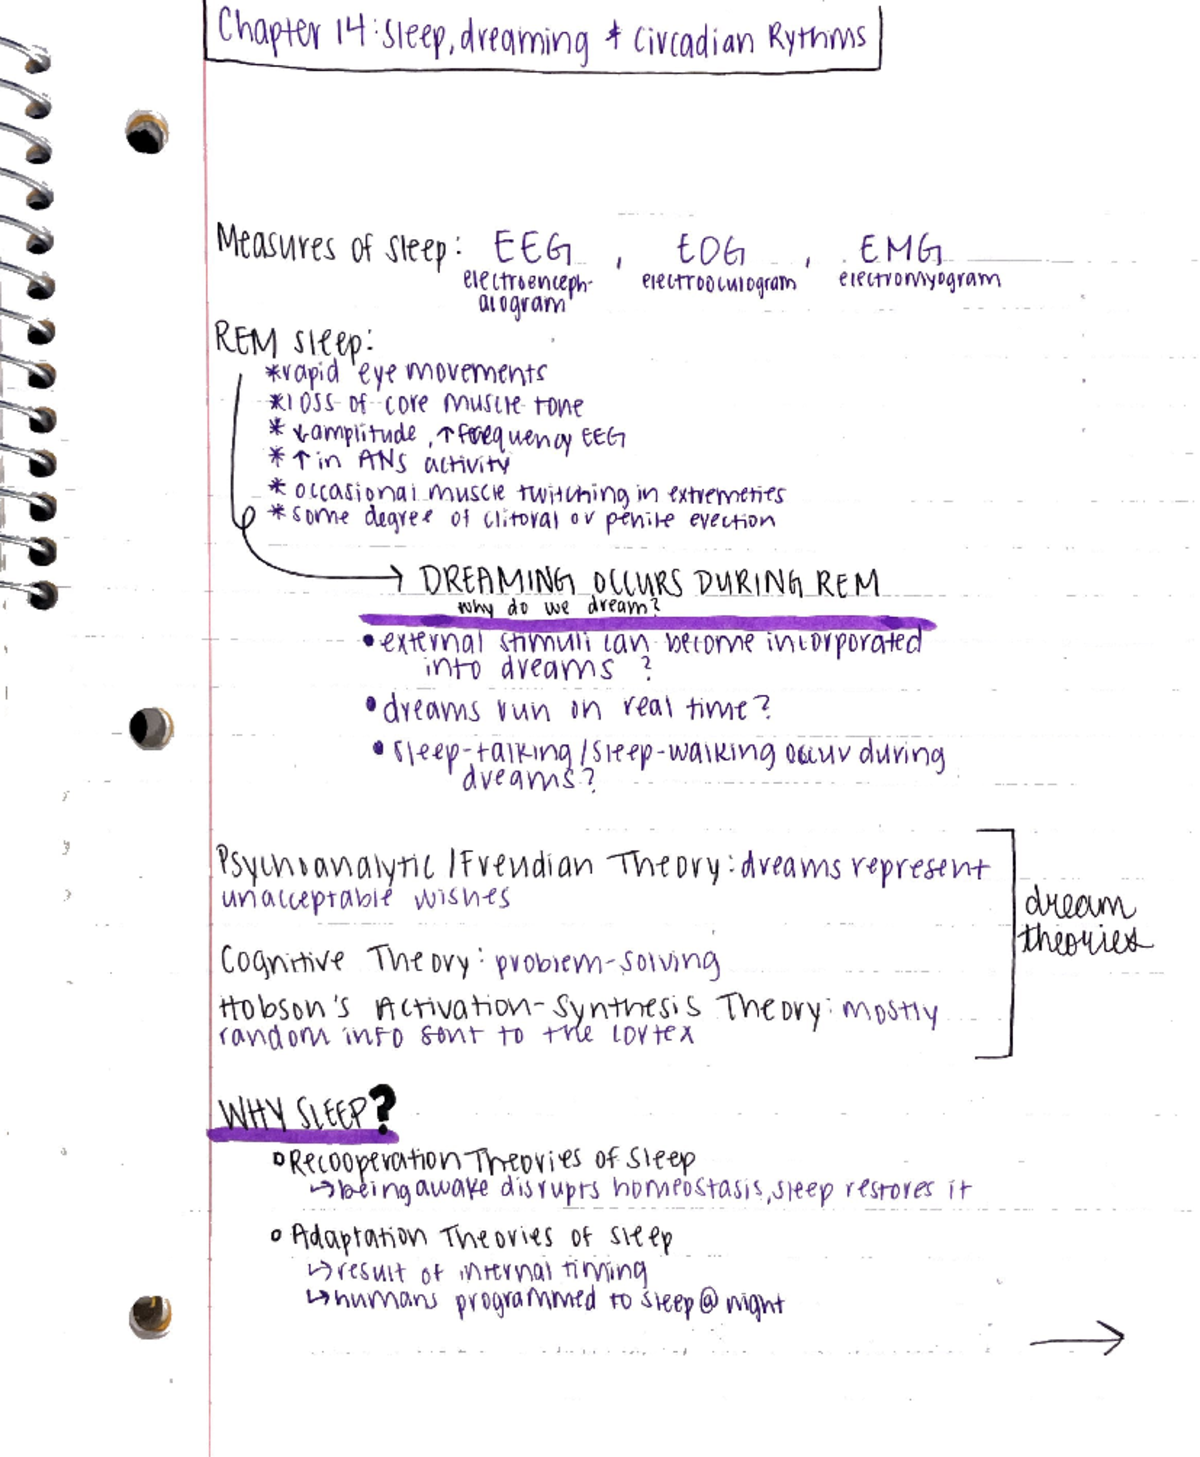 Chapter 14: Sleep, dreaming & Circadian Rythms
Measures of Sleep: EEG, EOG, EMG
electroenceph- electrooculogram electromyogram
alogram
REM Sleep:
*rapid eye movements
*loss of core muscle tone
* ↓amplitude, ↑frequency EEG
* ↑ in ANS activity
* occasional muscle twitching in extremeties
*some degree of clitoral or penile erection
→ DREAMING OCCURS DURING REM
why do we dream?
• external stimuli can become incorporated
into dreams ?
• dreams run on real time?
• sleep-talking/sleep-walking occur during
dreams?
Psychoanalytic/Freudian Theory: dreams represent
unacceptable wishes
dream
theories
Cognitive Theory: problem-solving
Hobson's Activation-Synthesis Theory: mostly
random info sent to the cortex
WHY SLEEP?
Recooperation Theories of Sleep
↳being awake disrupts homeostasis, sleep restores it
Adaptation Theories of sleep
↳result of internal timing
↳humans programmed to sleep @ night
→